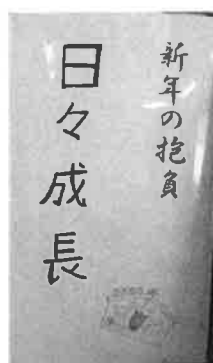 新年の抱負
日々成長